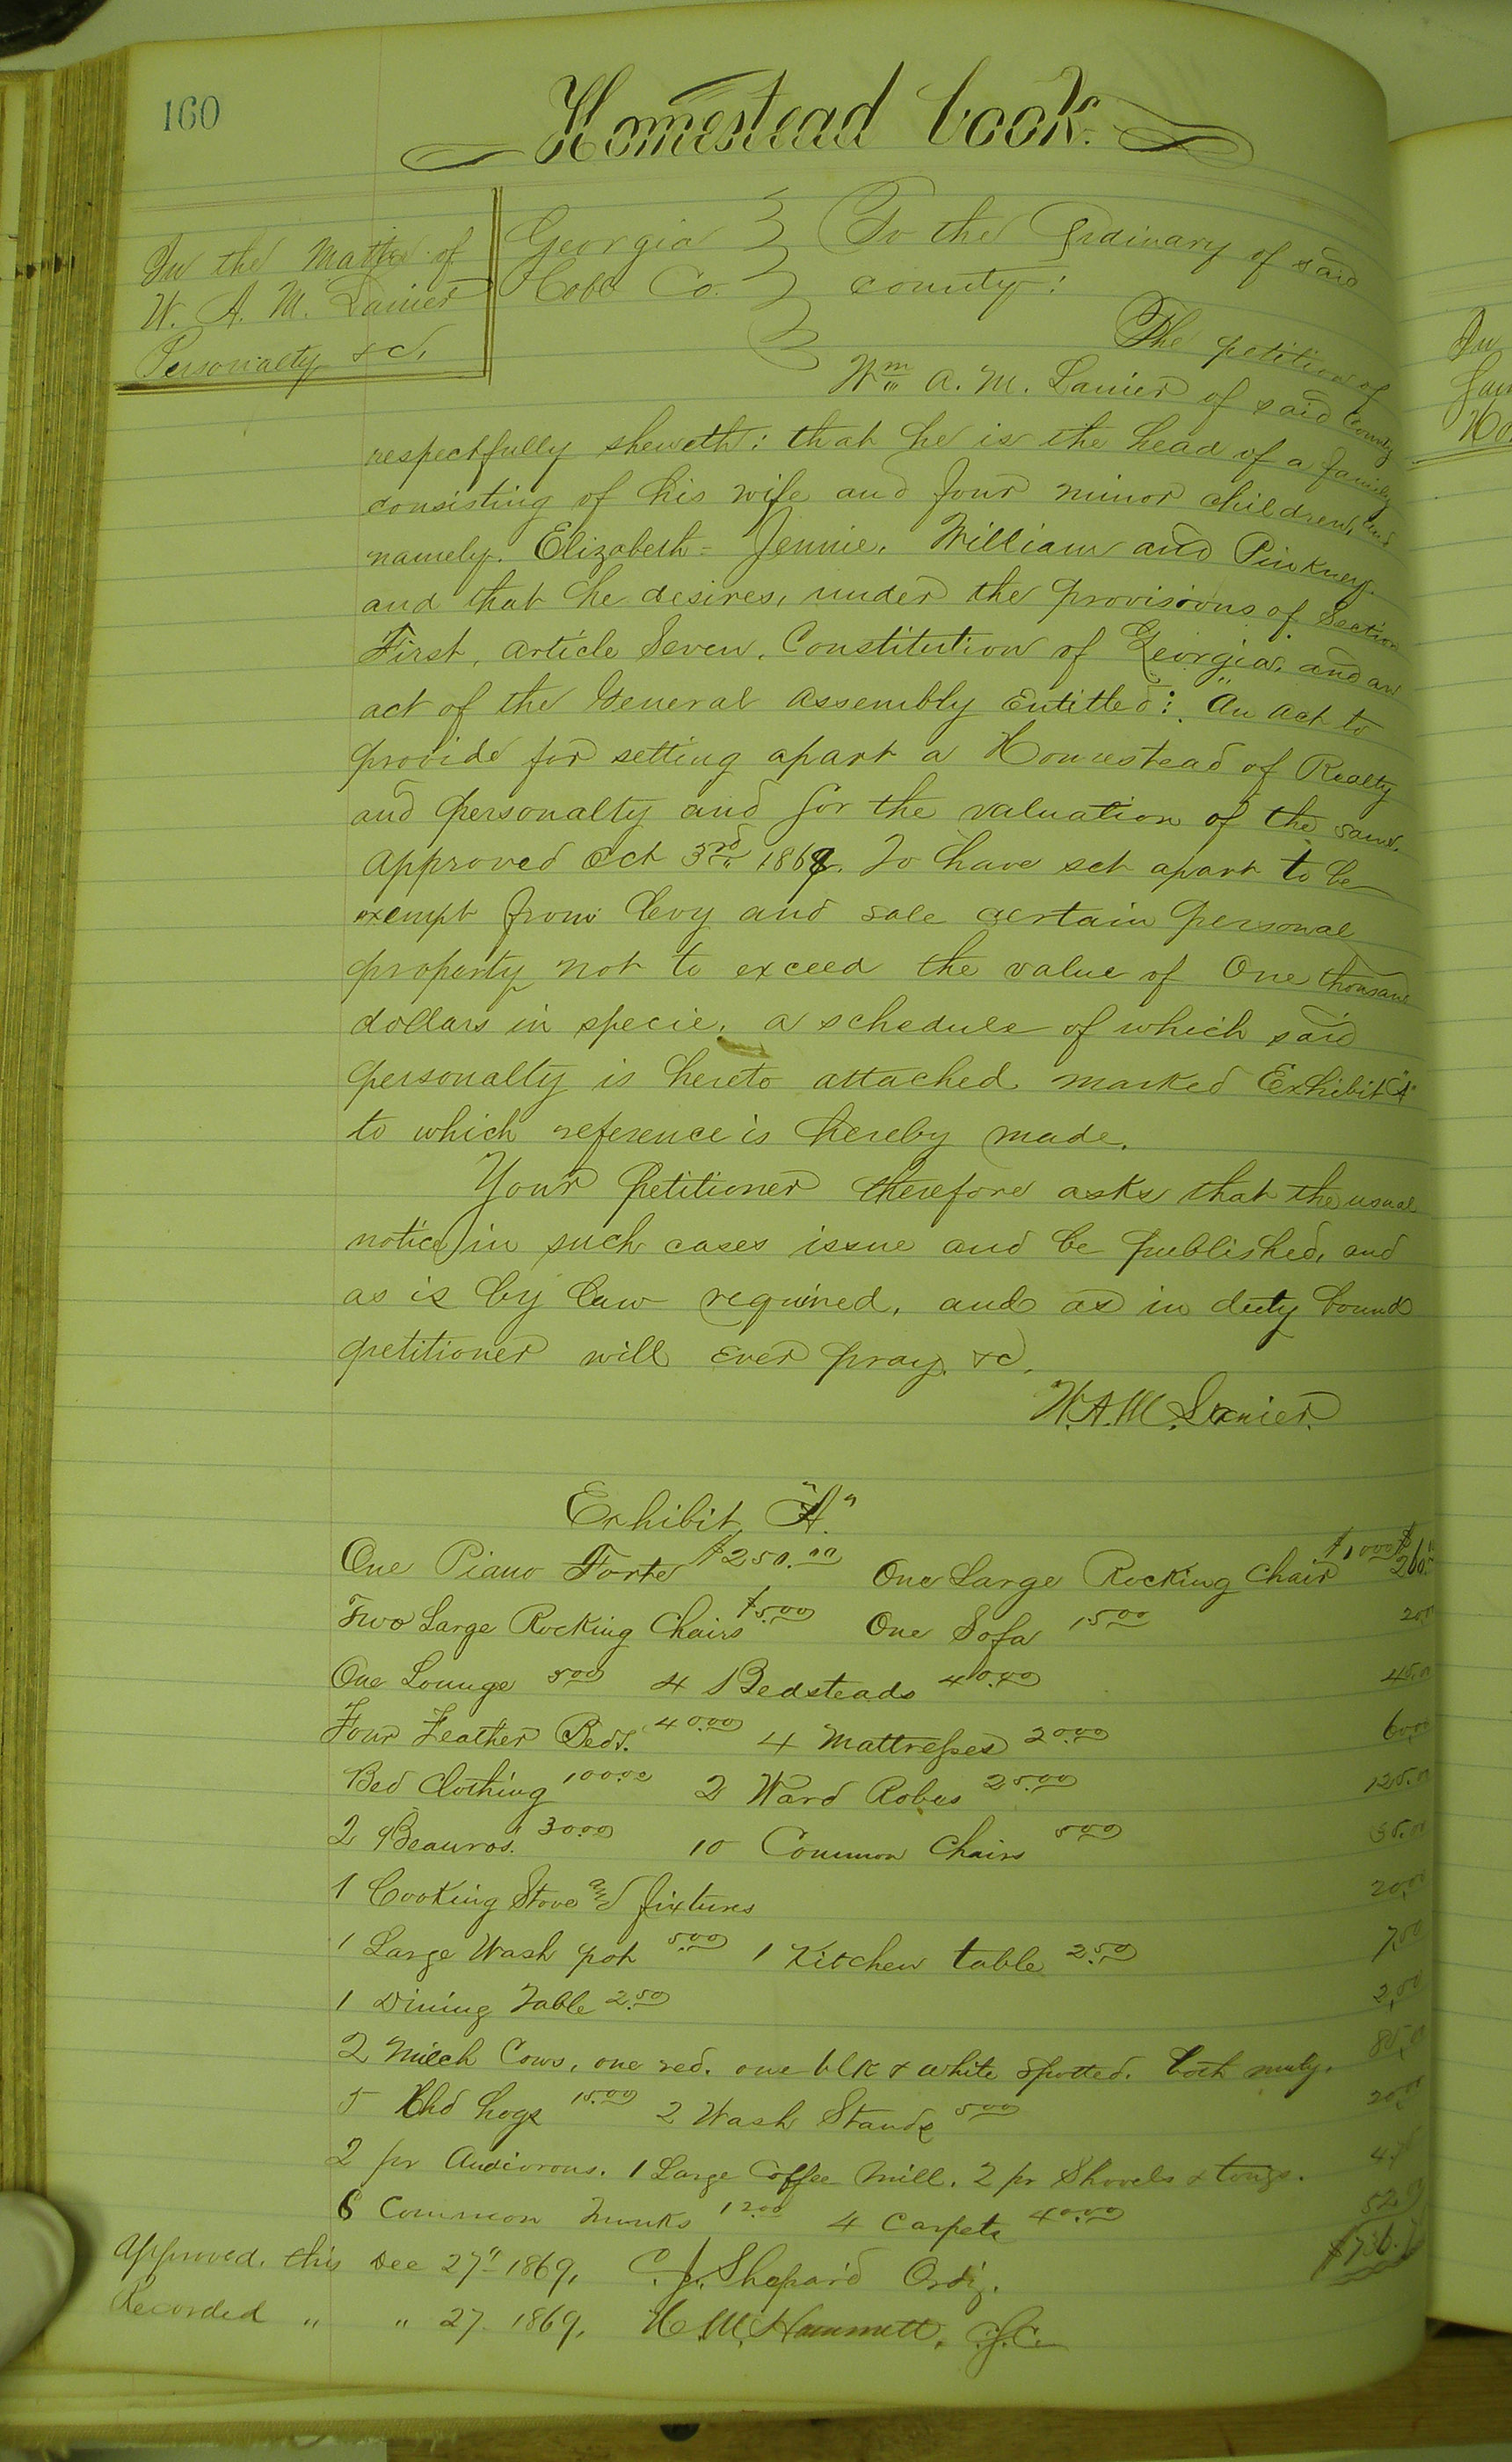 160
Homestead book.
In the Matter of
W. A. M. Lanier
Personalty &c.
Georgia
Cobb Co.
To the Ordinary of said
county:
The petition of
Wm A. M. Lanier of said County
respectfully sheweth: that he is the head of a family
consisting of his wife and four minor children,
namely. Elizabeth - Jennie. William and Pinkney.
and that he desires, under the provisions of Section
First, article Seven, Constitution of Georgia, and an
act of the General Assembly Entitled: "An act to
provide for setting apart a Homestead of Realty
and personalty and for the valuation of the same.
Approved Oct 3rd 1868. To have set apart to be
exempt from levy and sale certain personal
property not to exceed the value of One thousand
dollars in specie, a schedule of which said
personalty is hereto attached marked Exhibit "A"
to which reference is hereby made.
Your petitioner therefore asks that the usual
notice in such cases issue and be published, and
as is by law required, and as in duty bound
petitioner will ever pray. &c.
W.A.M. Lanier.
Exhibit "A."
One Piano Forte $250.00 One Large Rocking Chair $10.00 $260.
Two Large Rocking Chairs $5.00 One Sofa 15.00 20.00
One Lounge 5.00 4 Bedsteads 40.00 45.00
Four Feather Beds. 40.00 4 Mattresses 20.00 60.00
Bed Clothing 100.00 2 Ward Robes 25.00 125.00
2 Beauros. 30.00 10 Common Chairs 5.00 35.00
1 Cooking Stove and fixtures 20.00
1 Large Wash pot 5.00 1 Kitchen table 2.50 7.50
1 Dining Table 2.50 2.50
2 Milch Cows, one red. one blk & white spotted. both 85.00
5 hogs 15.00 2 Wash Stands 5.00 20.00
2 pr Andirons. 1 Large Coffee Mill. 2 pr Shovels & tongs.
6 Common Trunks 12.00 4 Carpets 40.00 52.00
Approved, this Dec 27" 1869, C. J. Shepard Ordy.
Recorded " " 27. 1869, H. M. Hammett, C.S.C.